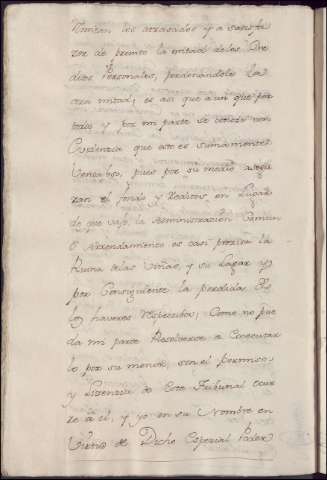 los atrasados y a satisfa
zer de prompto la mitad de los Cre
ditos Personales, perdonandole la
otra mitad; es asi que aun que por
todo y por mi parte se conoce con
evidencia que esto es sumamente
Ventajoso, pues por su medio asegu
ran el fondo y Reditos, en Lugar
de que vajo la Administracion Comun
o Arrendamiento es casi precisa la
Ruina de las Viñas, y su Lagar y
por Consiguiente la perdida de
los haveres Respectivos; Como no pue
da mi parte Resolverse a executar
lo por su menor, sin el permiso
y Licencia de Este Tribunal ocur
re a él, y yo en su Nombre en
Virtud de Dicho Especial Poder